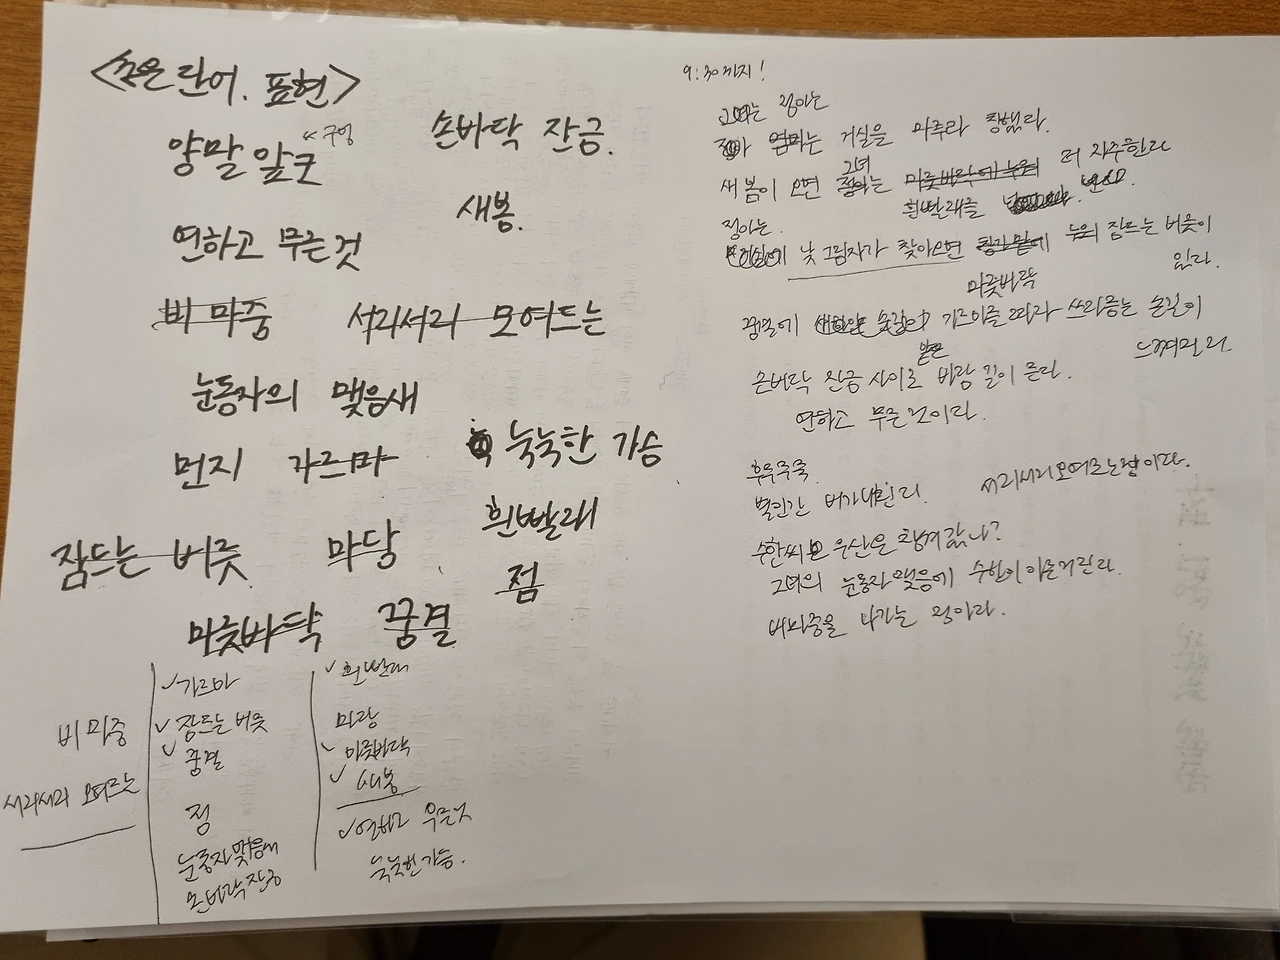 <좋은 단어. 표현>
양말 앞코 << 구멍
손바닥 잔금.
새봄.
연하고 무른 것
비 마중
서리서리 모여드는
눈동자의 맺음새
먼지 가르마
눅눅한 가슴
흰빨래
잠드는 버릇
마당
점
마룻바닥
꿈결
비 마중
서리서리 모여드는
✓가르마
✓잠드는 버릇
✓꿈결
점
눈동자맺음새
손바닥 잔금
✓흰빨래
마당
✓마룻바닥
✓새봄
✓연하고 무른것
눅눅한 가슴.
9:30까지!
그녀는 정아는
거실을 마루라 칭했다.
새 봄이 오면 그녀는 더 자주
흰빨래를
정아는
낮 그림자가 찾아오면 마룻바닥에 누워 잠드는 버릇이
있다.
꿈결에 가르마를 따라 쓰다듬는 손길이
느껴진다.
손바닥 잔금 사이로 바람 길이 튼다.
연하고 무른 것이다.
후두두둑.
별안간 비가 내린다. 서리서리 모여드는
수한씨 우산은 챙겨 갔나?
그녀의 눈동자 맺음에 수한이 아른거린다.
비마중을 나가는 정아다.